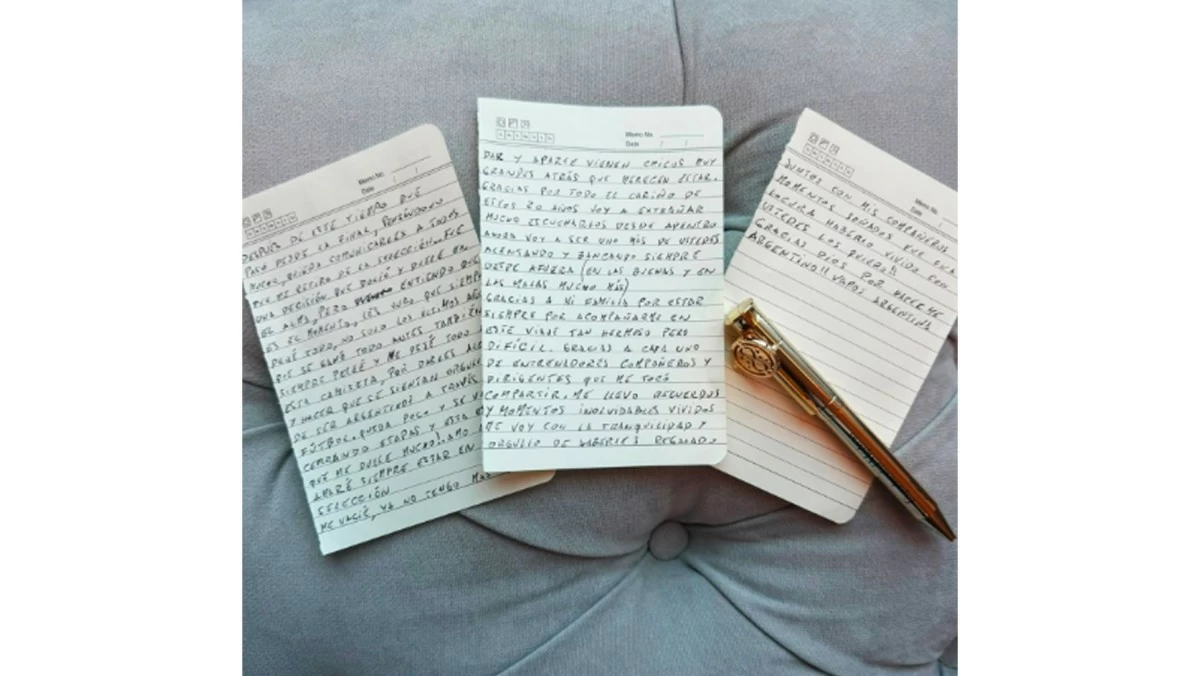 Memo No.
Date / /
DESPUÉS DE ESTE TIEMPO QUE
PASÓ DESDE LA FINAL, PENSÁNDOLO
MUCHO, QUERÍA COMUNICARLES A TODOS
QUE ME RETIRO DE LA SELECCIÓN. FUE
UNA DECISIÓN QUE DOLIÓ Y DUELE EN
EL ALMA, PERO ENTIENDO QUE
ES EL MOMENTO, LES JURO QUE SIEMPRE
DEJÉ TODO, NO SOLO LOS ULTIMOS AÑOS
QUE SE GANÓ TODO ANTES TAMBIÉN
SIEMPRE PELEÉ Y ME DEJÉ TODO
ESTA CAMISETA, POR DARLES
Y HACER QUE SE SIENTAN
DE SER ARGENTINOS A TRAVÉS
FÚTBOL. QUEDA POCO Y SE
CERRANDO ETAPAS Y ESTA
QUE ME DUELE MUCHO! AMO
AMARÉ SIEMPRE ESTAR EN
SELECCIÓN
ME VACIÉ, YA NO TENGO
Memo No.
Date / /
DAR Y APARTE VIENEN CHICOS MUY
GRANDES ATRÁS QUE MERECEN ESTAR.
GRACIAS POR TODO EL CARIÑO DE
ESTOS 20 AÑOS VOY A EXTRAÑAR
MUCHO ESCUCHARLOS DESDE ADENTRO
AHORA VOY A SER UNO MÁS DE USTEDES
ALENTANDO Y BANCANDO SIEMPRE
DESDE AFUERA (EN LAS BUENAS Y EN
LAS MALAS MUCHO MÁS)
GRACIAS A MI FAMILIA POR ESTAR
SIEMPRE POR ACOMPAÑARME EN
ESTE VIAJE TAN HERMOSO PERO
DIFÍCIL. GRACIAS A CADA UNO
DE ENTRENADORES COMPAÑEROS Y
DIRIGENTES QUE ME TOCÓ
COMPARTIR. ME LLEVO RECUERDOS
Y MOMENTOS INOLVIDABLES VIVIDOS
ME VOY CON LA TRANQUILIDAD Y
ORGULLO DE HABERLES REGALADO
Memo No.
Date / /
JUNTOS CON MIS COMPAÑEROS
MOMENTOS SOÑADOS FUE UNA
LOCURA HABERLO VIVIDO CON
USTEDES LOS QUIERO!!
GRACIAS DIOS POR HACERME
ARGENTINO!! VAMOS ARGENTINA